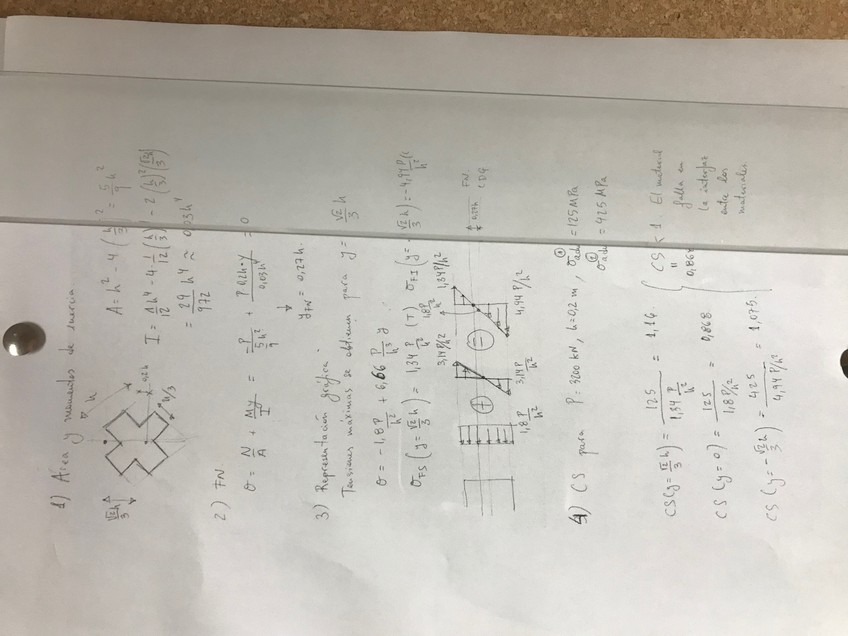 1) Área y momentos de inercia
h
√2h/3
0,2h
h/3
A = h² - 4 (h/3)² = 5/9 h²
I = 1/12 h⁴ - 4 1/12 (h/3)⁴ - 2 (h/3)² (√2h/3)²
= 29/972 h⁴ ≈ 0,03h⁴
2) FN
σ = N/A + My/I = -P/(5/9 h²) + P·0,2h·y/0,03h⁴ = 0
↓
yFN = 0,27h.
3) Representación gráfica:
Tensiones máximas se obtienen para y = √2/3 h
σ = -1,8 P/h² + 6,66 P/h³ y
σFS (y = √2/3 h) = 1,34 P/h² (T) σFI (y = -√2/3 h) = -4,94 P/h²
1,8 P/h²
+
3,14 P/h²
3,14 P/h²
=
1,8 P/h²
1,34 P/h²
4,94 P/h²
0,27h FN.
CDG
4) CS para P = 3200 kN, h = 0,2 m, σadm① = 125 MPa
σadm② = 425 MPa
CS (y = √2/3 h) = 125/(1,34 P/h²) = 1,16.
CS (y = 0) = 125/(1,8 P/h²) = 0,868
CS (y = -√2/3 h) = 425/(4,94 P/h²) = 1,075.
CS < 1. El material
0,868
falla en
la interfaz
entre los
materiales.